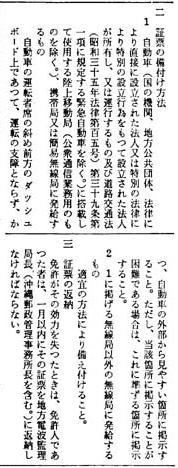 二 証票の備付け方法
1 自動車(国の機関、地方公共団体、法律に
より直接に設立された法人又は特別の法律に
より特別の設立行為をもつて設立された法人
が所有し、又は運行するもの及び道路交通法
(昭和三十五年法律第百五号)第三十九条第
一項に規定する緊急自動車を除く。)に搭載し
て使用する陸上移動局(公衆通信業務用のも
のを除く。)、携帯局又は簡易無線局に発給す
るもの
自動車の運転者席の斜め前方のダッシュ
ボード上であつて、運転の支障とならず、か
つ、自動車の外部から見やすい箇所に掲示す
ること。ただし、当該箇所に掲示することが
困難である場合は、これに準ずる箇所に掲示
すること。
2 1に掲げる無線局以外の無線局に発給する
もの
適宜の方法により備え付けること。
三 証票の返納
免許がその効力を失つたときは、免許人であ
つた者は、一月以内にその証票を地方電波監理
局長(沖縄郵政管理事務所長を含む。)に返納し
なければならない。